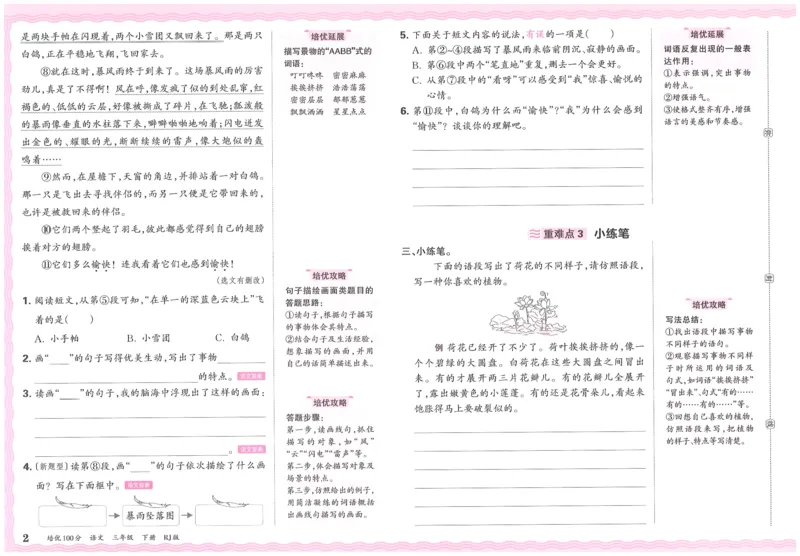 是两块手帕在闪现着,两个小雪团又飘回来了。那是两只
白鸽,正在平稳地飞翔,飞回家去。
⑧就在这时,暴风雨终于到来了。这场暴风雨的厉害
劲儿,真是了不得啊!风在呼,像发疯了似的到处乱窜,红
褐色的、低低的云层,好像被撕成了碎片,在飞驰;瓢泼般
的暴雨像垂直的水柱落下来,噼噼啪啪地响着;闪电迸发
出金色的、耀眼的光,断断续续的雷声,像大炮似的轰
鸣着……
⑨然而,在屋檐下,天窗的角边,并排站着一对白鸽。
那一只是飞出去寻找伴侣的,而另一只便是它带回来的,
也许是被救回来的伴侣。
⑩它们两个竖起了羽毛,彼此都感觉得到自己的翅膀
挨着对方的翅膀。
⑪它们多么愉快!连我看着它们也感到愉快!
(选文有删改)
1. 阅读短文,从第⑤段可知,“在单一的深蓝色云块上”飞
着的是( )
A. 小手帕 B. 小雪团 C. 白鸽
2. 画“____”的句子写得优美生动,写出了事物
的特点。
3. 读画“____”的句子,我的脑海中浮现出了这样的画面:
。
4. 〔新题型〕读第⑧段,画“____”的句子依次描绘了什么画
面?写在下面框中。
暴雨坠落图
2 培优100分 语文 三年级 下册 RJ版
培优延展
描写景物的“AABB”式的
词语:
叮叮咚咚 密密麻麻
挨挨挤挤 浩浩荡荡
密密层层 郁郁葱葱
飘飘洒洒 星星点点
培优攻略
句子描绘画面类题目的
答题思路:
①读句子,根据句子描写
的事物体会其特点。
②结合句子及生活经验,
想象描写的画面,并用
自己的话简单描述出来。
培优攻略
答题步骤:
第一步,读画线句,抓住
描写的对象,如“风”
“云”“闪电”“雷声”等。
第二步,体会描写对象及
场景的特点。
第三步,仿照给出的例子,
用简洁凝练的词语概括
出画线句描写的画面。
5. 下面关于短文内容的说法,有误的一项是( )
A. 第②~④段描写了暴风雨来临前阴沉、寂静的画面。
B. 第⑥段中两个“笔直地”重复,删去一个会更好。
C. 从第⑦段中的“看呀”可以感受到“我”惊喜、愉悦的
心情。
6. 第⑪段中,白鸽为什么而“愉快”?“我”为什么会感到
“愉快”?谈谈你的理解吧。
重难点 3 小练笔
三、小练笔。
下面的语段写出了荷花的不同样子,请仿照语段,
写一种你喜欢的植物。
例 荷花已经开了不少了。荷叶挨挨挤挤的,像一
个个碧绿的大圆盘。白荷花在这些大圆盘之间冒出
来。有的才展开两三片花瓣儿。有的花瓣儿全展开
了,露出嫩黄色的小莲蓬。有的还是花骨朵儿,看起来
饱胀得马上要破裂似的。
培优延展
词语反复出现的一般表
达作用:
①表示强调,突出事物
的特点。
②增强语气。
③使格式整齐有序,增强
语言的美感和节奏感。
培优攻略
写法总结:
①找出语段中描写事物
不同样子的语句。
②观察描写事物不同样
子时所运用的词语及
句式,如词语“挨挨挤挤”
“冒出来”、句式“有的……
有的……有的……”等。
③回想自己喜欢的植物,
仿照语段来写,把植物
的样子、特点等写清楚。